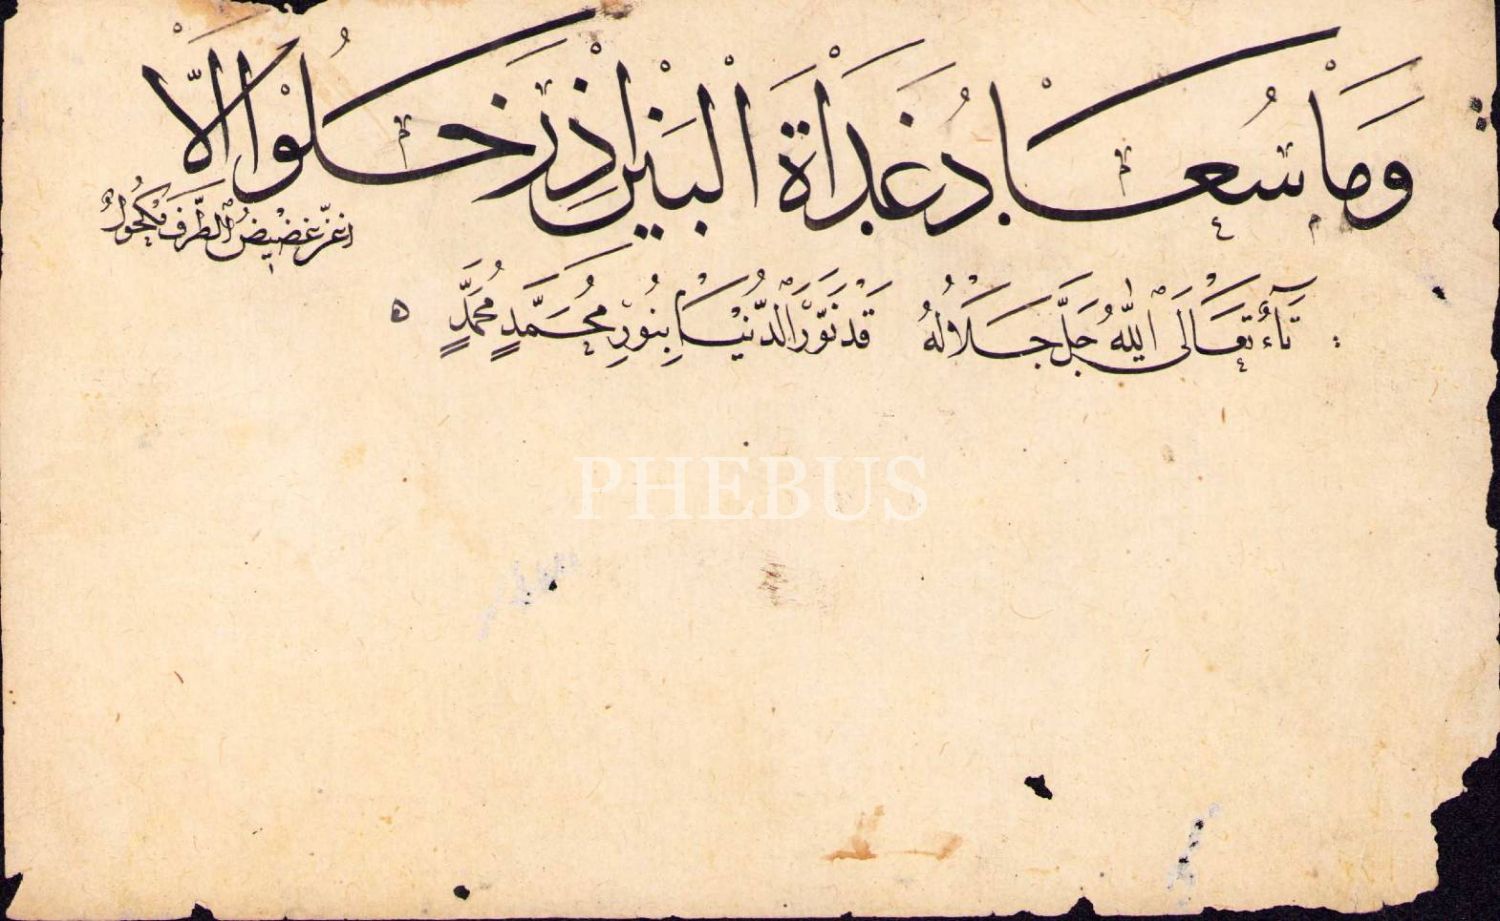 وَمَا سُعَادُ غَدَاةَ الْبَيْنِ إِذْ رَحَلُوا إِلَّا
اغَنُّ غَضِيضُ الطَّرْفِ مَكْحُولُ
تَعَالَى اللّٰهُ جَلَّ جَلَالُهُ قَدْ نَوَّرَ الدُّنْيَا بِنُورِ مُحَمَّدٍ مُحَمَّدٍ
PHEBUS